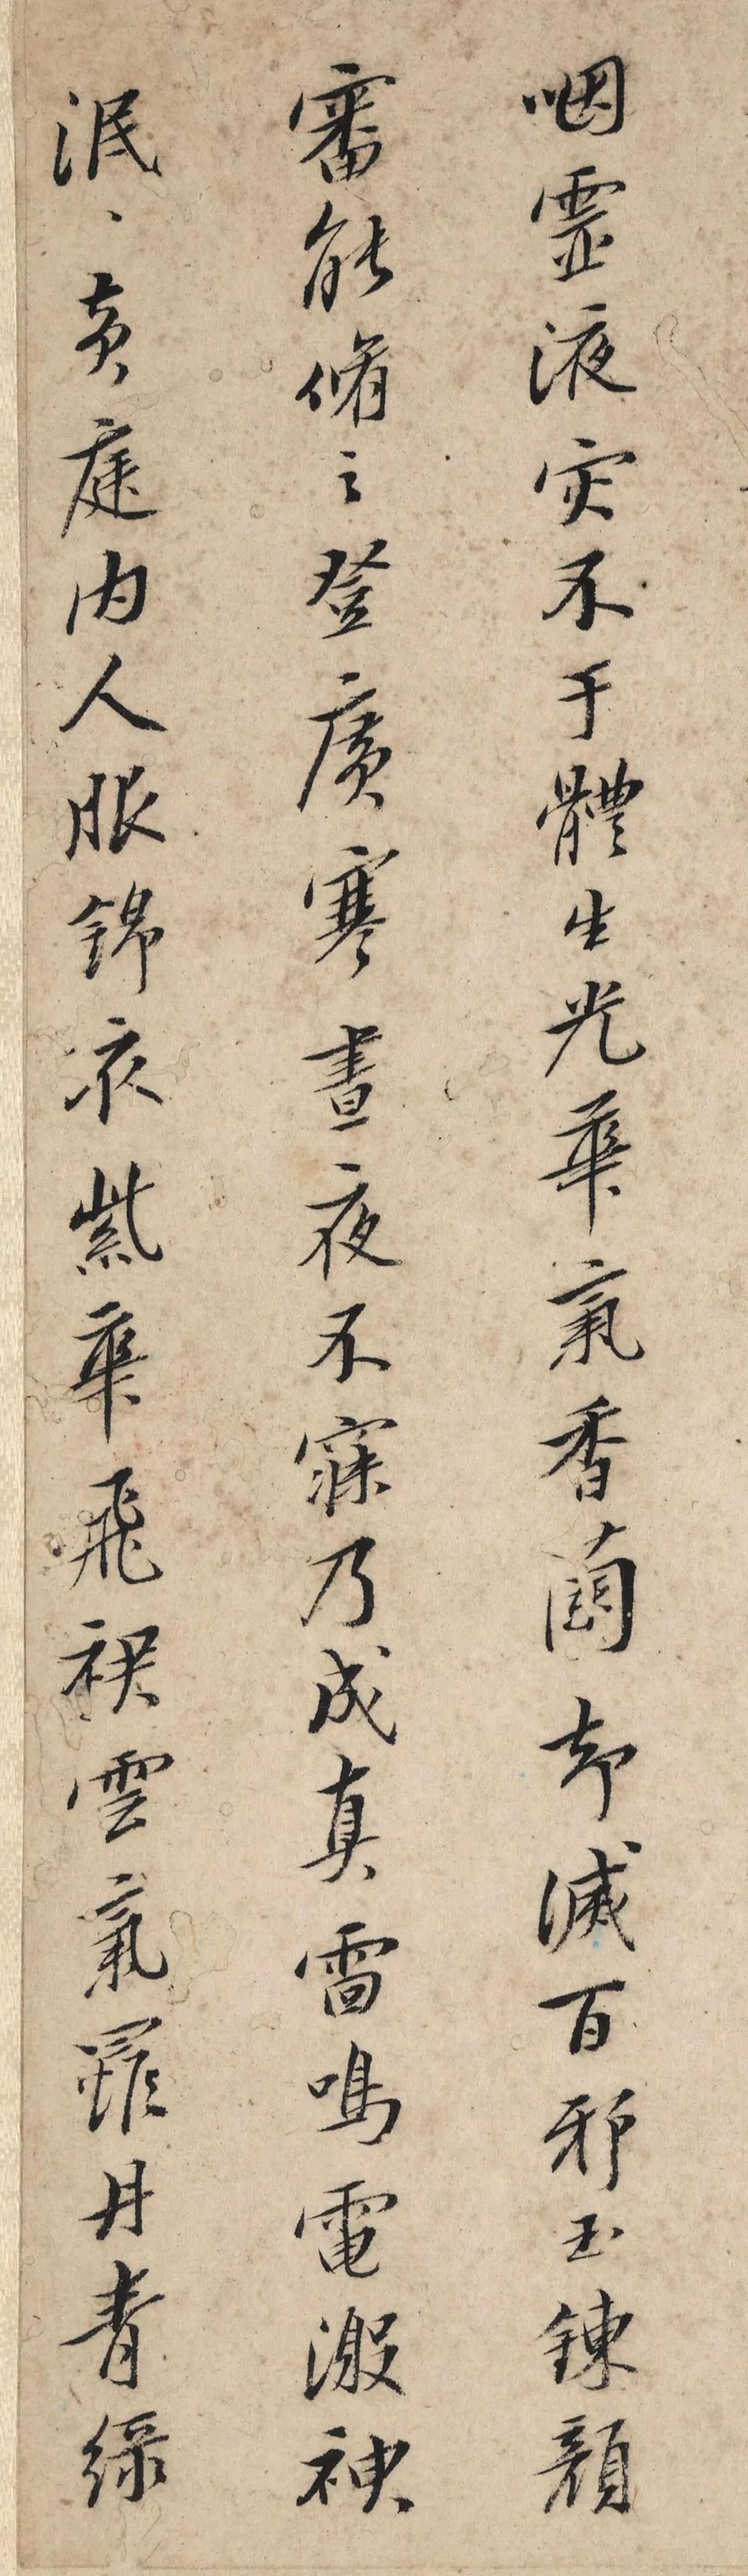 咽霊液灾不干體生光華氣香蘭却滅百邪玉鍊顏
審能脩之登廣寒晝夜不寐乃成真雷鳴電激神
泯〻黃庭内人服錦衣紫華飛裙雲氣羅丹青綠